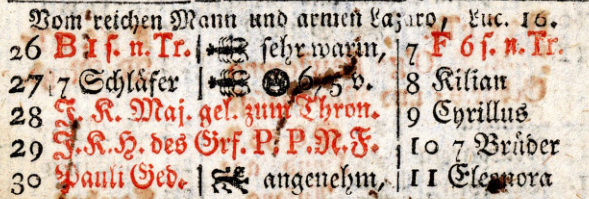 Vom reichen Mann und armen Lazaro, Luc. 16.
26 B 1 s. n. Tr. sehr warm, 7 F 6 s. n. Tr.
27 7 Schläfer v. 8 Kilian
28 J. K. Maj. gel. zum Thron. 9 Cyrillus
29 J. K. H. des Grf. P. P. N. F. 10 7 Brüder
30 Pauli Ged. angenehm, 11 Eleonora